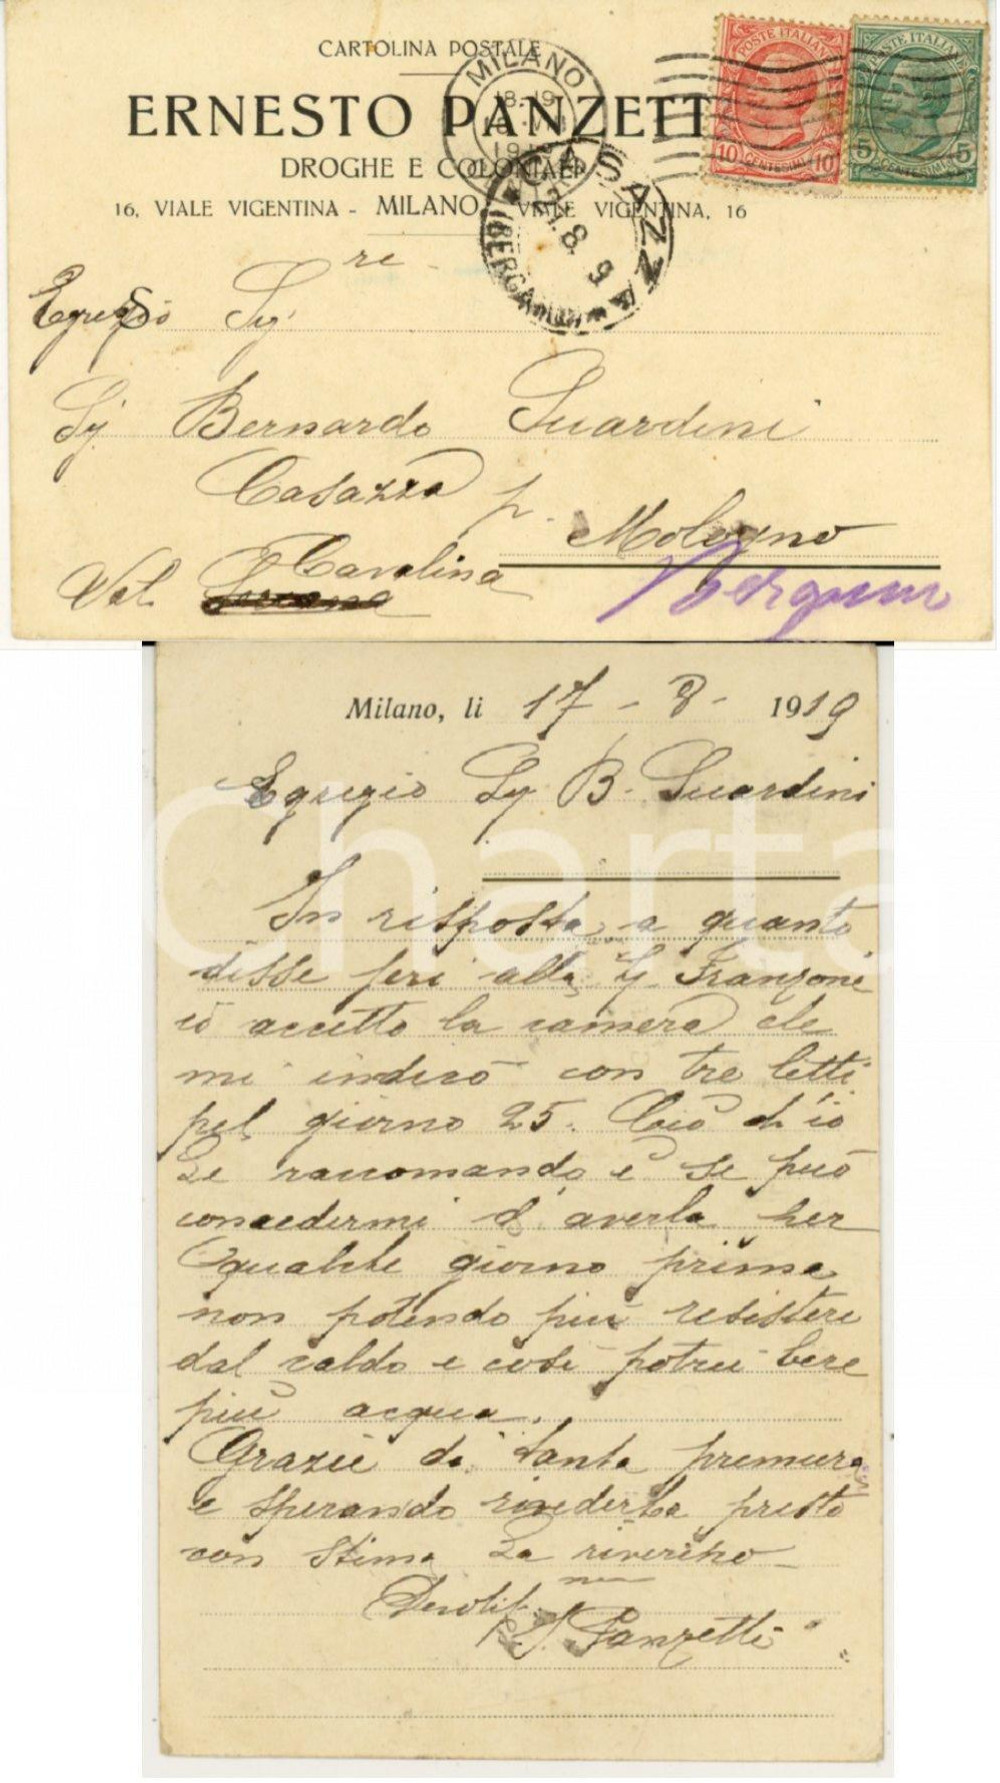 CARTOLINA POSTALE
ERNESTO PANZETT
DROGHE E COLONIALI
16, VIALE VIGENTINA - MILANO, VIALE VIGENTINA, 16
MILANO
18.19
CASAZZA
(BERGAMO)
21.8
POSTE ITALIANE
10 CENTESIMI 10
POSTE ITALIANE
5 CENTESIMI 5
Egregio Sigre
Sig Bernardo Suardini
Casazza p. Mologno
Val Cavalina
Bergamo
Milano, li 17 - 8 - 1919
Egregio Sig B. Suardini
In risposta a quanto
disse jeri alla Sig. Franzoni
io accetto la camera che
mi indicò con tre letti
pel giorno 25. Ciò ch'io
Le raccomando è se può
concedermi d'averla per
qualche giorno prima
non potendo più resistere
dal caldo e così potrei bere
più acqua.
Grazie di tanta premura
e sperando rivederla presto
con stima La riverisco
Devotis.mo
E. Panzetti
Charta